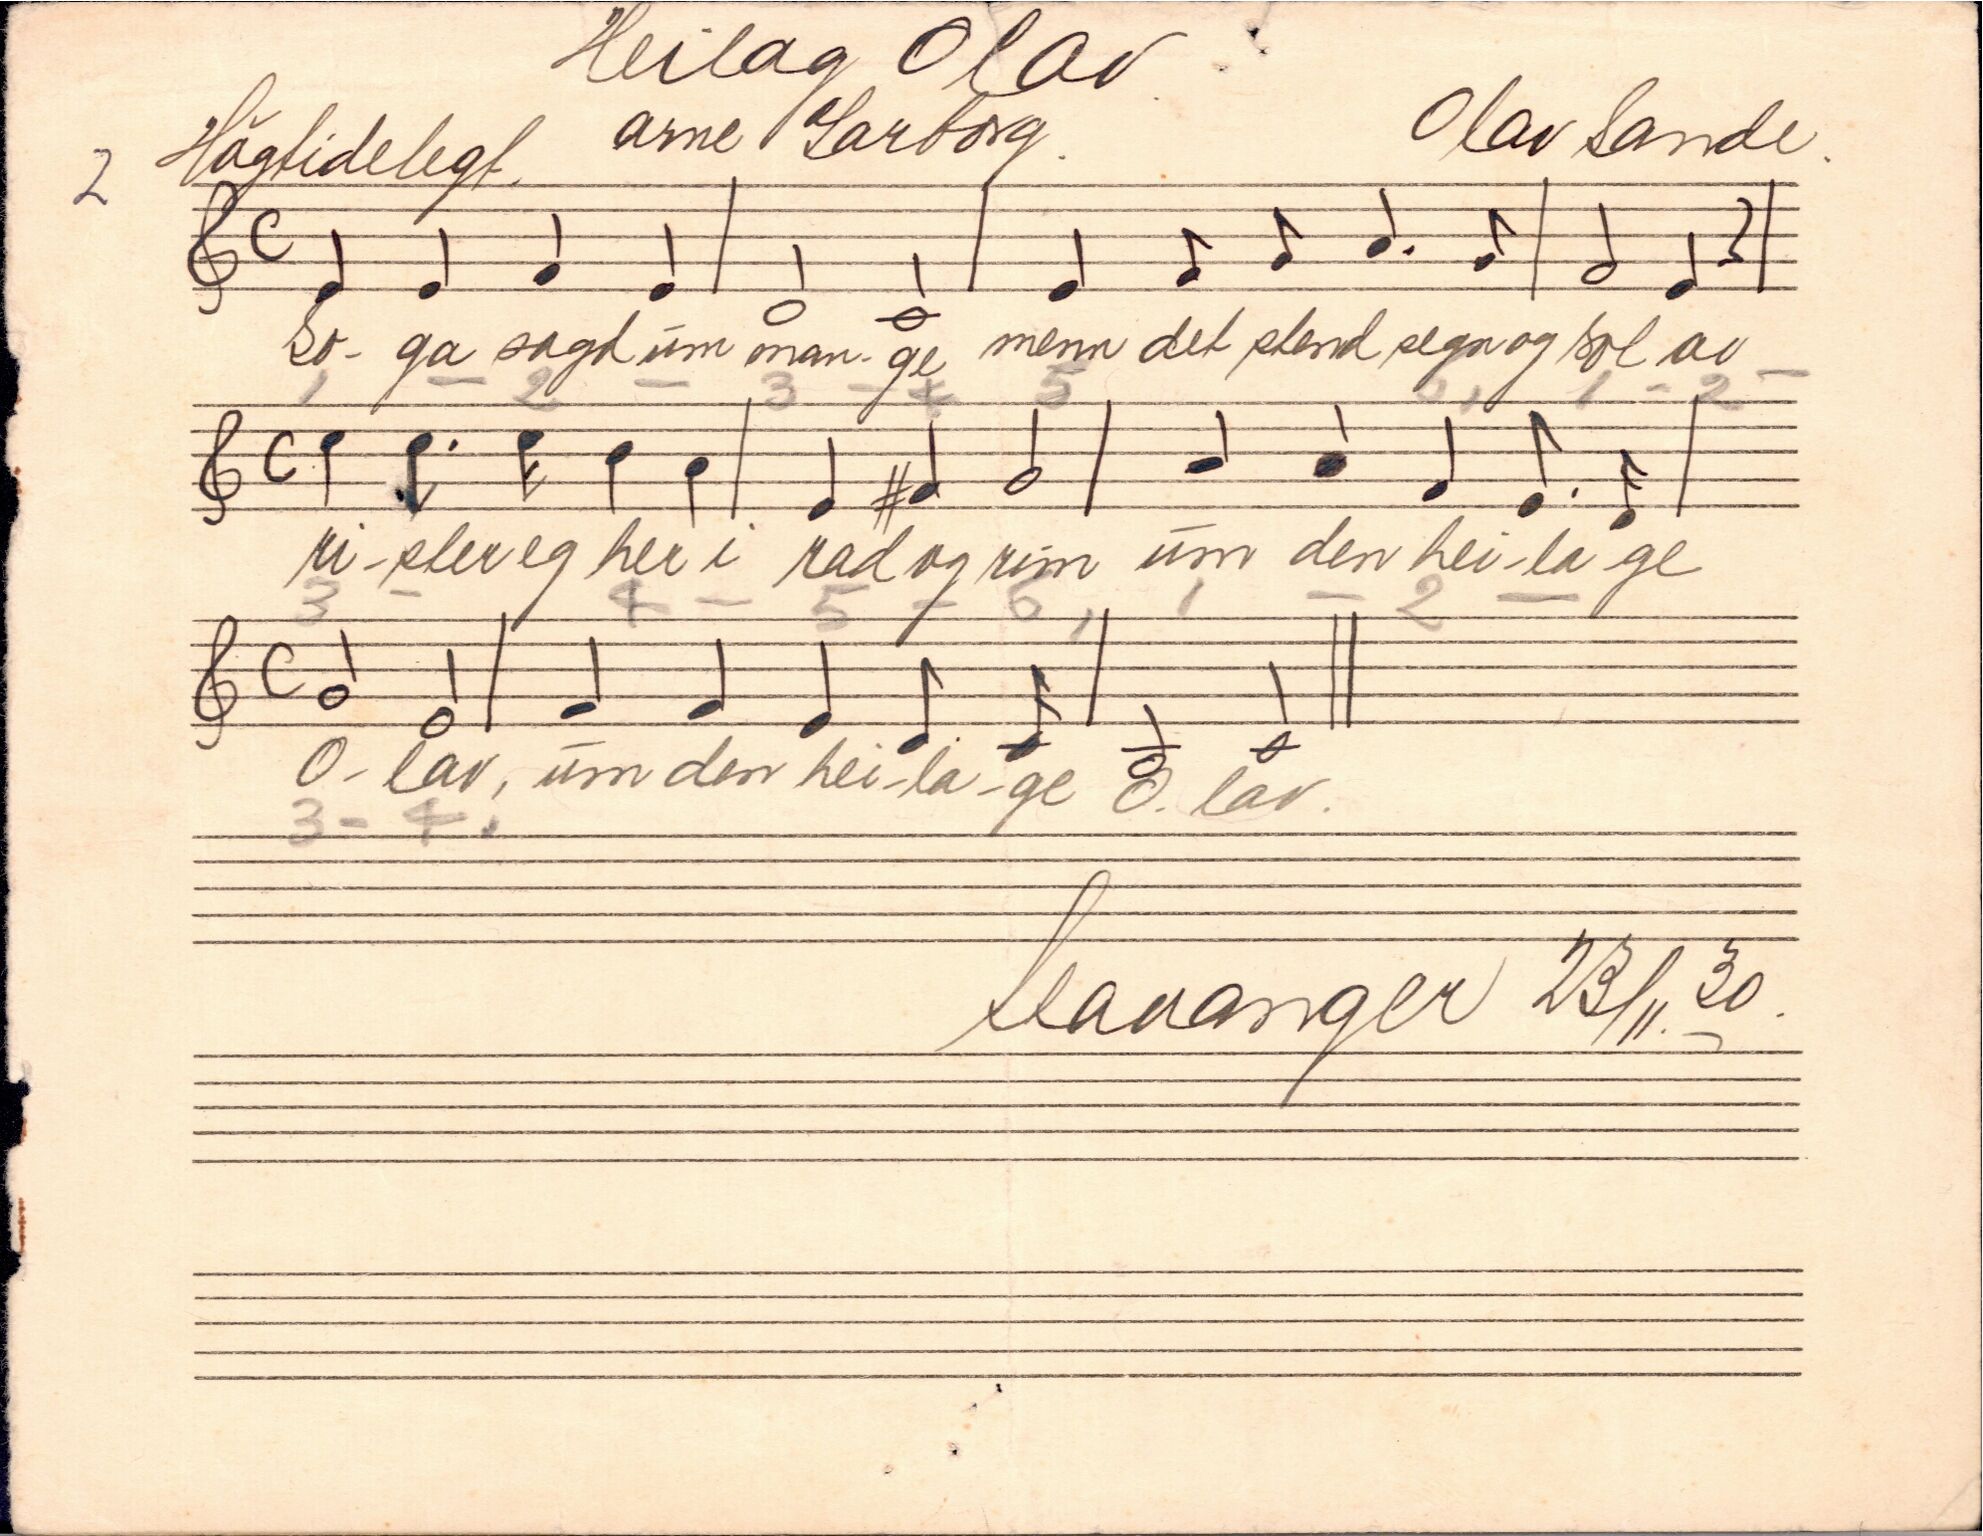 Heilag Olav
Högtidelegt. Arne Garborg. Olav Sande.
2
So- ga sagd um man- ge menn det stend segn og sol av
1 - 2 - 3 - 4 5 6, 1 - 2 -
ri-ster eg her i rad og rim um den hei-la ge
3 - 4 - 5 - 6, 1 - 2 -
O- lav, um den hei-la-ge O. lav.
3- 4,
Stavanger 23/11. 30.